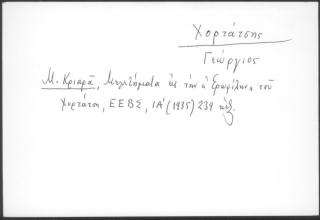 Χορτάτσης
Γεώργιος
Μ. Κριαρᾶ, Μελετήματα εἰς τὴν «Ἐρωφίλην» τοῦ
Χορτάτση, ΕΕΒΣ, ΙΑ' (1935) 239 κἑξ.